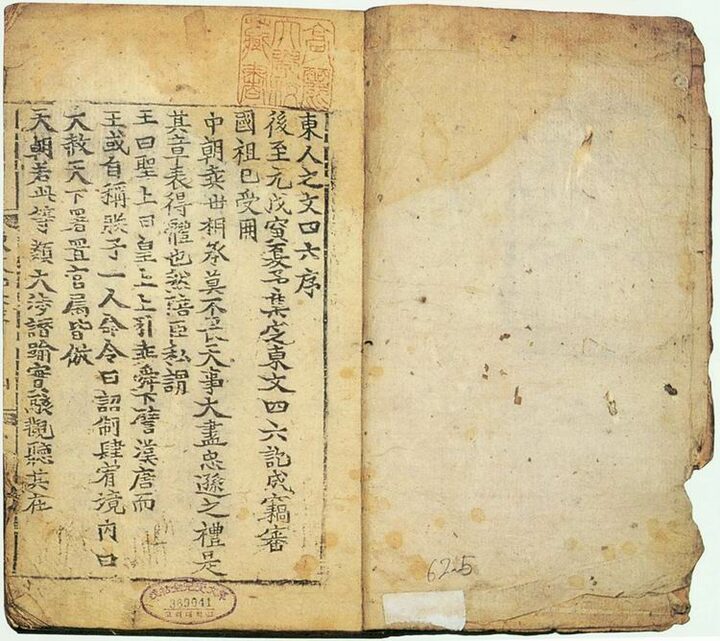 高麗大學校藏書
東人之文四六序
後至元戊寅夏予集定東文四六訖成竊審
國祖已受冊
中朝奕世相承莫不畏天事大盡忠遜之禮是
其章表得體也然陪臣私謂
王曰聖上曰皇上上引堯舜下譬漢唐而
王或自稱朕予一人命令曰詔制肆宥境內曰
大赦天下署置官屬皆倣
天朝若此等類大涉譖踰實駭觀聽其在
62-5